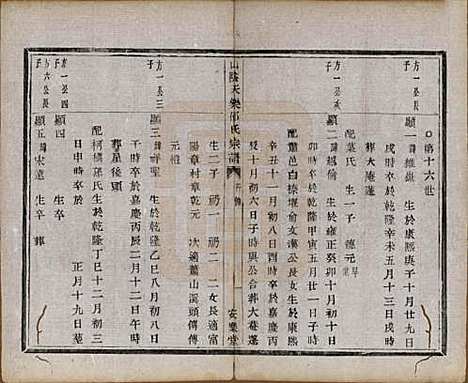 第十六世
方一公長子
顯一 維錦 生於康熙庚子十月廿九日
戌時卒於乾隆辛未五月十三日戌時
葬大庵蓬
配葉氏 生一子 德元
方一公次子
顯二 越倫 生於康熙癸卯十月初十日
時卒於乾隆甲寅五月廿一日子時
配蕭邑白
俞女漢公長女生於康熙
辛丑十一月初八日酉時卒於嘉慶丙
辰十月初六日子時與公合葬大庵蓬
山陰天樂邵氏宗譜
安樂堂
生二子 初一 初二 一女長適富
陽章村章乾元 次適蕭山溪頭傅傳
元惟
方一公三子
顯三 祥聖 生於乾隆乙巳八月初八日
子時卒於嘉慶丙辰二月十二日午時
葬屋後頭
配柯橋孫氏生於乾隆丁巳十二月初三
日申時卒於 正月十九日葬
方一公四子
顯四 生卒 葬
方六公長子
顯五 宏遠 生卒 葬